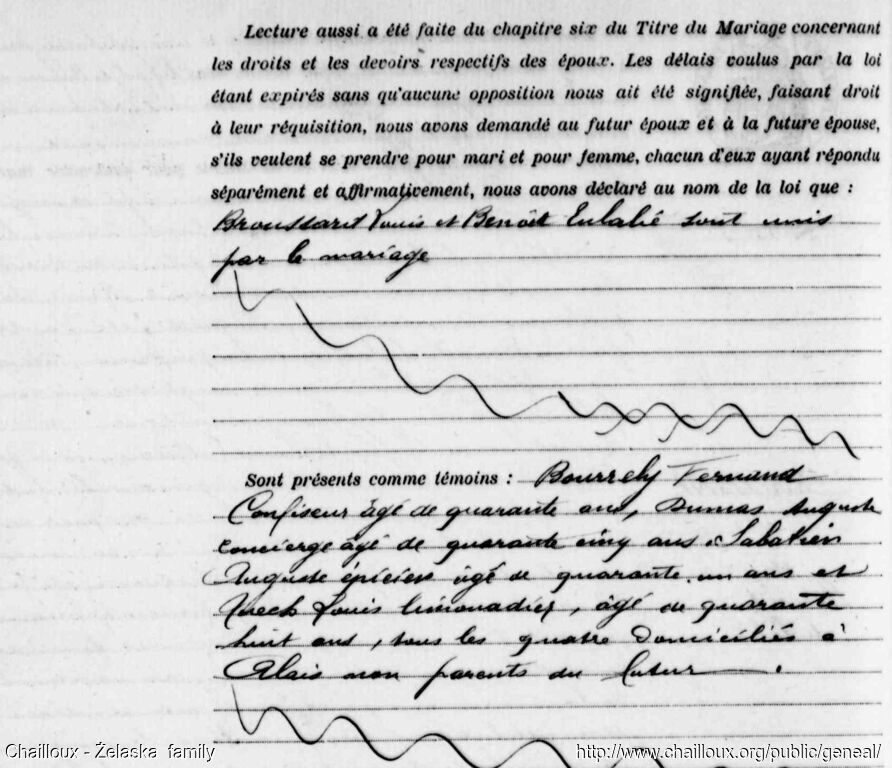 Lecture aussi a été faite du chapitre six du Titre du Mariage concernant
les droits et les devoirs respectifs des époux. Les délais voulus par la loi
étant expirés sans qu'aucune opposition nous ait été signifiée, faisant droit
à leur réquisition, nous avons demandé au futur époux et à la future épouse,
s'ils veulent se prendre pour mari et pour femme, chacun d'eux ayant répondu
séparément et affirmativement, nous avons déclaré au nom de la loi que :
Broussard Louis et Benoit Eulalie sont unis
par le mariage
Sont présents comme témoins : Bourrely Fernand
Confiseur âgé de quarante ans, Dumas Auguste
concierge âgé de quarante cinq ans, Sabatier
Auguste épicier âgé de quarante un ans et
Louis limonadier, âgé de quarante
huit ans, tous les quatre domiciliés à
Alais non parents du futur.
Chailloux - Żelaska family
http://www.chailloux.org/public/geneal/